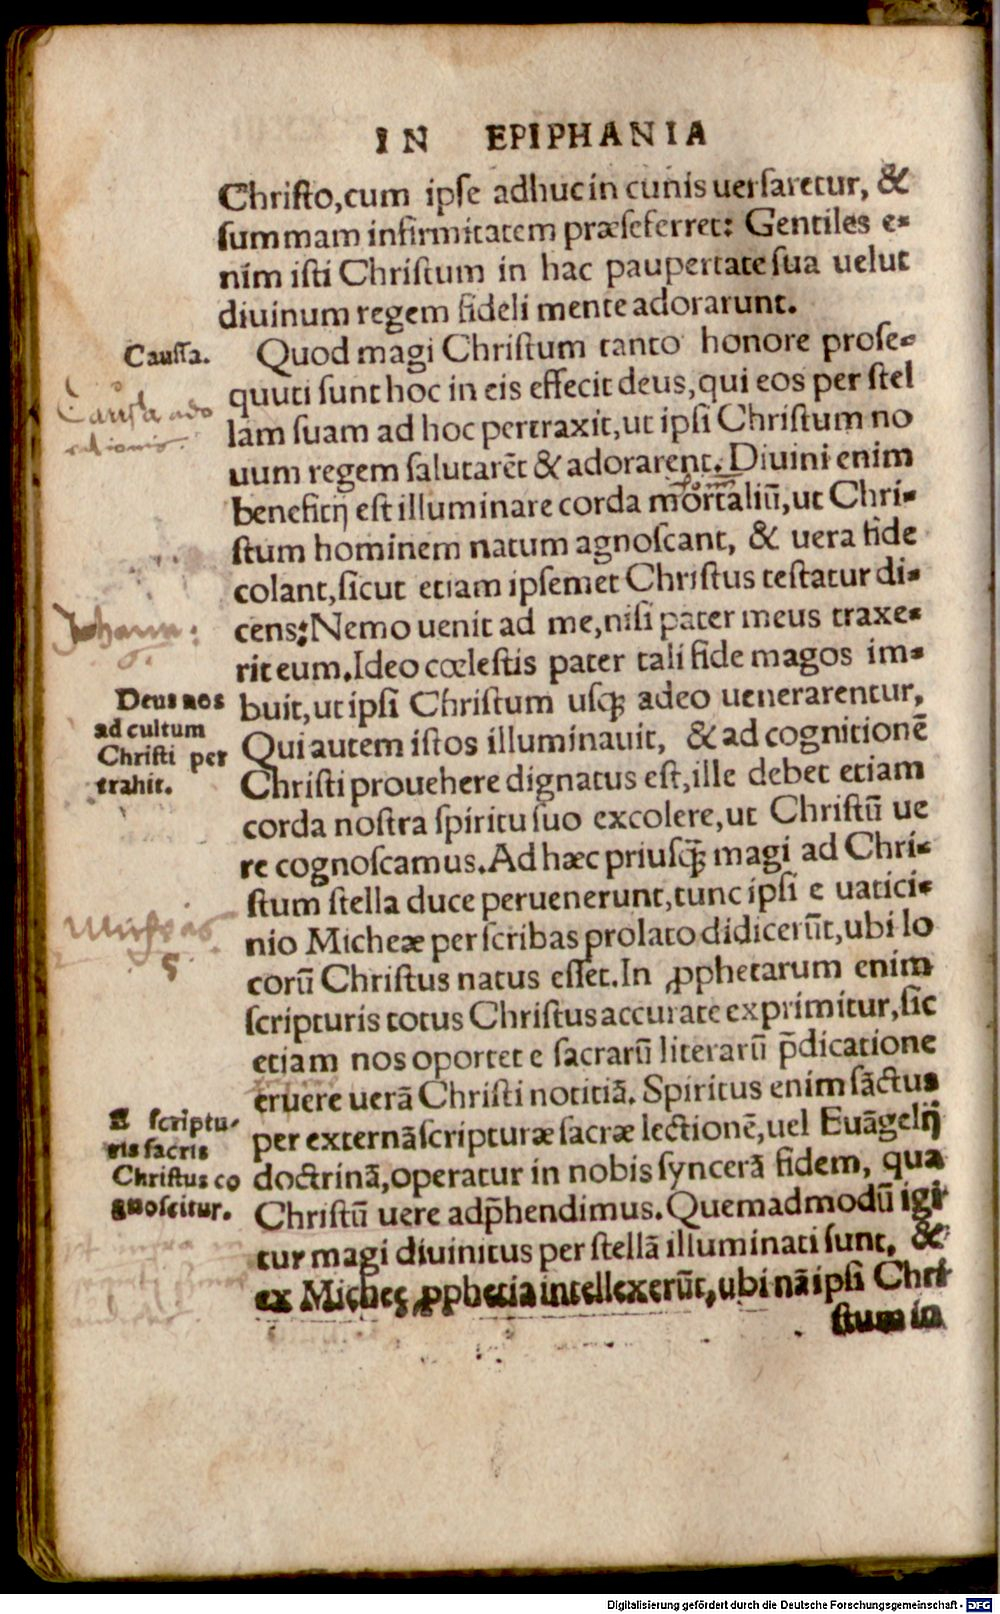 IN EPIPHANIA
Christo,cum ipse adhuc in cunis uersaretur, &
summam infirmitatem præseferret: Gentiles e-
nim isti Christum in hac paupertate sua uelut
diuinum regem fideli mente adorarunt.
Caussa.
Quod magi Christum tanto honore prose-
quuti sunt hoc in eis effecit deus,qui eos per stel
Caussa ado
lam suam ad hoc pertraxit,ut ipsi Christum no
rationis.
uum regem salutarēt & adorarent. Diuini enim
beneficij est illuminare corda mortaliū,ut Chri-
stum hominem natum agnoscant, & uera fide
colant,sicut etiam ipsemet Christus testatur di-
cens:Nemo uenit ad me,nisi pater meus traxe-
Johann:
6.
rit eum.Ideo cœlestis pater tali fide magos im-
Deus nos
ad cultum
Christi per
trahit.
buit,ut ipsi Christum usq̃ adeo uenerarentur,
Qui autem istos illuminauit, & ad cognitionē
Christi prouehere dignatus est,ille debet etiam
corda nostra spiritu suo excolere,ut Christū ue
re cognoscamus.Ad hæc priusq̃ magi ad Chri-
stum stella duce peruenerunt,tunc ipsi e uatici-
nio Micheæ per scribas prolato didicerūt,ubi lo
Micheas
5
corū Christus natus esset.In ꝓphetarum enim
scripturis totus Christus accurate exprimitur,sic
etiam nos oportet e sacrarū literarū p̄dicatione
eruere uerā Christi notitiā. Spiritus enim sāctus
E scriptu-
ris sacris
Christus co
gnoscitur.
per externā scripturæ sacræ lectionē,uel Euāgelij
doctrinā,operatur in nobis syncerā fidem, qua
Christū uere adp̄hendimus.Quemadmodū igi
tur magi diuinitus per stellā illuminati sunt, &
ex Micheę ꝓphetia intellexerūt,ubi nā ipsi Chri
stum in
Digitalisierung gefördert durch die Deutsche Forschungsgemeinschaft - DFG